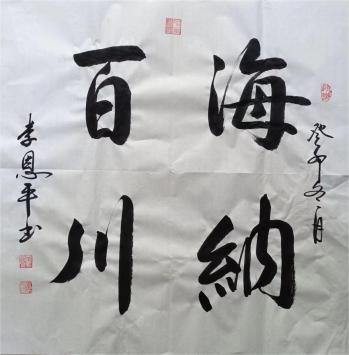 癸卯冬月
海納
百川
李恩平书